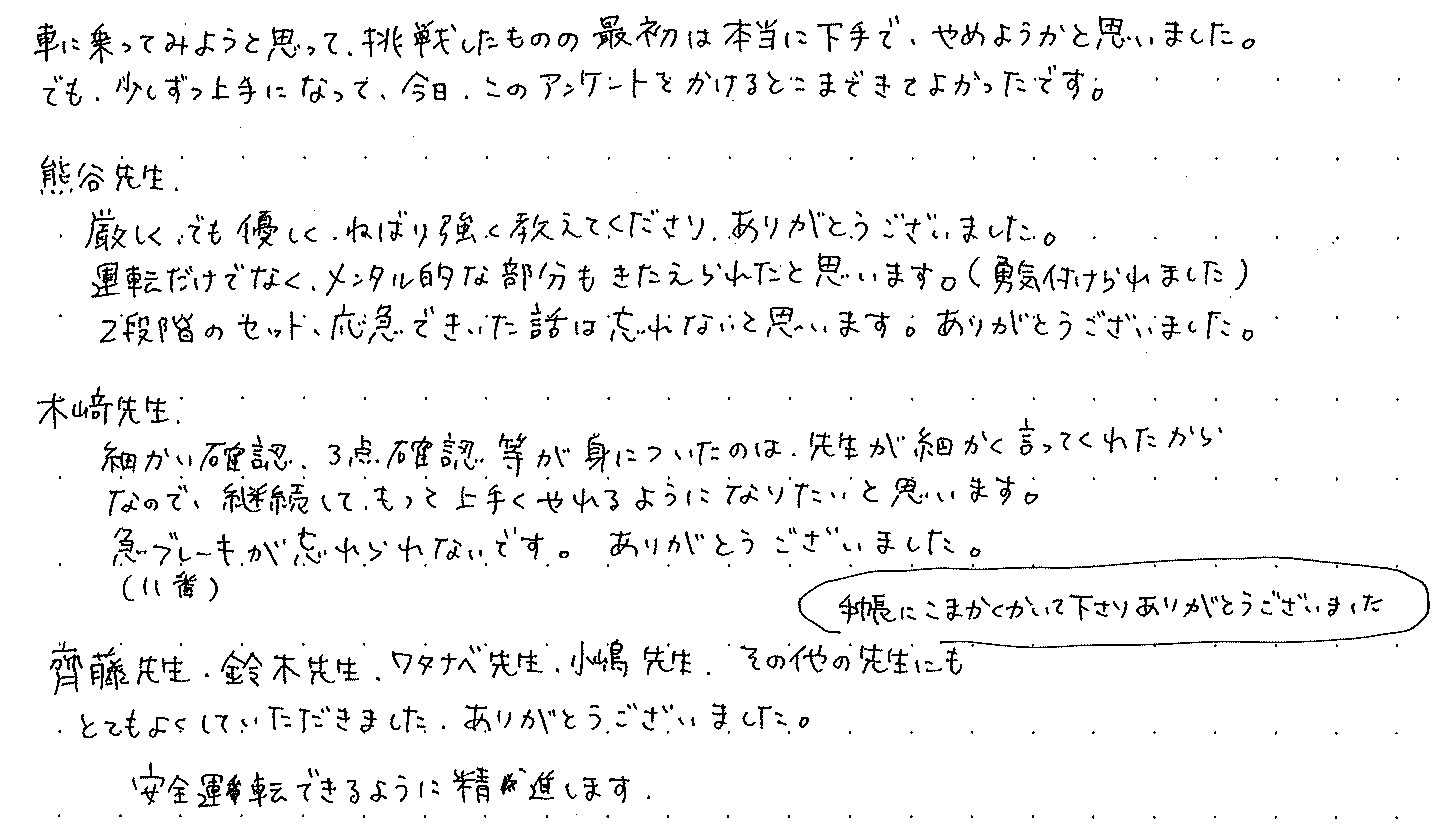 車に乗ってみようと思って、挑戦したものの最初は本当に下手で、やめようかと思いました。
でも、少しずつ上手になって、今日、このアンケートをかけるとこまできてよかったです。
熊谷先生、
厳しく、でも優しく、ねばり強く教えてくださり、ありがとうございました。
運転だけでなく、メンタル的な部分もきたえられたと思います。(勇気付けられました)
2段階のセット、応急できいた話は忘れないと思います。ありがとうございました。
木﨑先生、
細かい確認、3点確認等が身についたのは、先生が細かく言ってくれたから
なので、継続して、もっと上手くやれるようになりたいと思います。
急ブレーキが忘れられないです。 ありがとうございました。
(11番)
手帳にこまかくかいて下さりありがとうございました
齊藤先生、鈴木先生、ワタナベ先生、小嶋先生、その他の先生にも
とてもよくしていただきました、ありがとうございました。
安全運転できるように精進します.